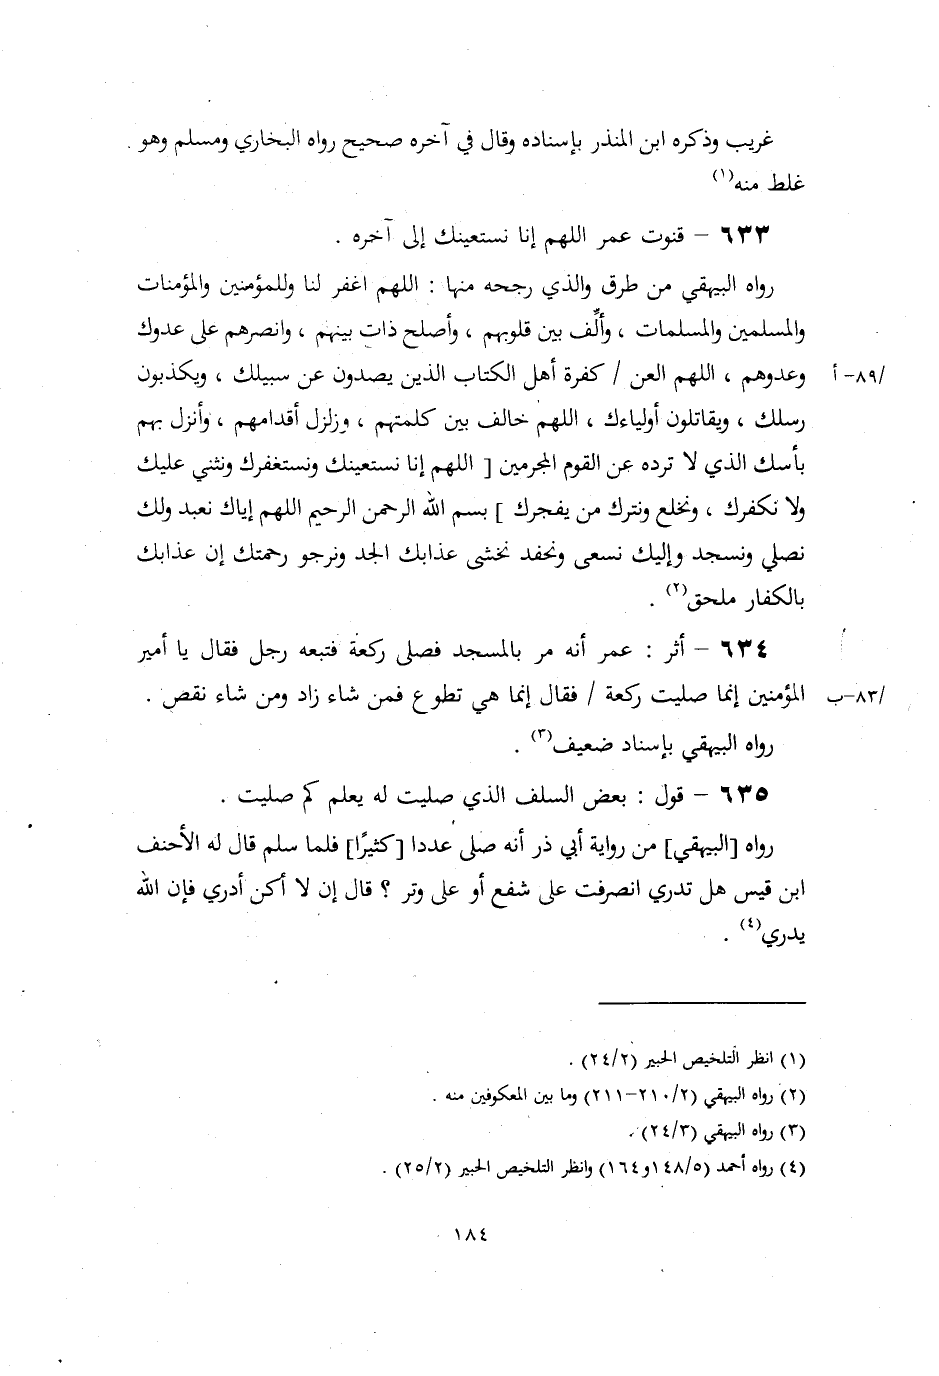 غريب وذكره ابن المنذر بإسناده وقال في آخره صحيح رواه البخاري ومسلم وهو
غلط منه(١)
٦٣٣ – قنوت عمر اللهم إنا نستعينك إلى آخره .
رواه البيهقي من طرق والذي رجحه منها : اللهم اغفر لنا وللمؤمنين والمؤمنات
والمسلمين والمسلمات ، وألِّف بين قلوبهم ، وأصلح ذات بينهم ، وانصرهم على عدوك
وعدوهم ، اللهم العن / كفرة أهل الكتاب الذين يصدون عن سبيلك ، ويكذبون
/٨٩-أ
رسلك ، ويقاتلون أولياءك ، اللهم خالف بين كلمتهم ، وزلزل أقدامهم ، وأنزل بهم
بأسك الذي لا ترده عن القوم المجرمين [ اللهم إنا نستعينك ونستغفرك ونثني عليك
ولا نكفرك ، ونخلع ونترك من يفجرك ] بسم الله الرحمن الرحيم اللهم إياك نعبد ولك
نصلي ونسجد وإليك نسعى ونحفد نخشى عذابك الجد ونرجو رحمتك إن عذابك
بالكفار ملحق(٢) .
٦٣٤ – أثر : عمر أنه مر بالمسجد فصلى ركعة فتبعه رجل فقال يا أمير
المؤمنين إنما صليت ركعة / فقال إنما هي تطوع فمن شاء زاد ومن شاء نقص .
/٨٣-ب
رواه البيهقي بإسناد ضعيف(٣) .
٦٣٥ – قول : بعض السلف الذي صليت له يعلم كم صليت .
رواه [البيهقي] من رواية أبي ذر أنه صلى عددا [كثيرًا] فلما سلم قال له الأحنف
ابن قيس هل تدري انصرفت على شفع أو على وتر ؟ قال إن لا أكن أدري فإن الله
يدري(٤) .
(١) انظر التلخيص الحبير (٢٤/٢) .
(٢) رواه البيهقي (٢١٠/٢–٢١١) وما بين المعكوفين منه .
(٣) رواه البيهقي (٢٤/٣) .
(٤) رواه أحمد (١٤٨/٥و١٦٤) وانظر التلخيص الحبير (٢٥/٢) .
١٨٤